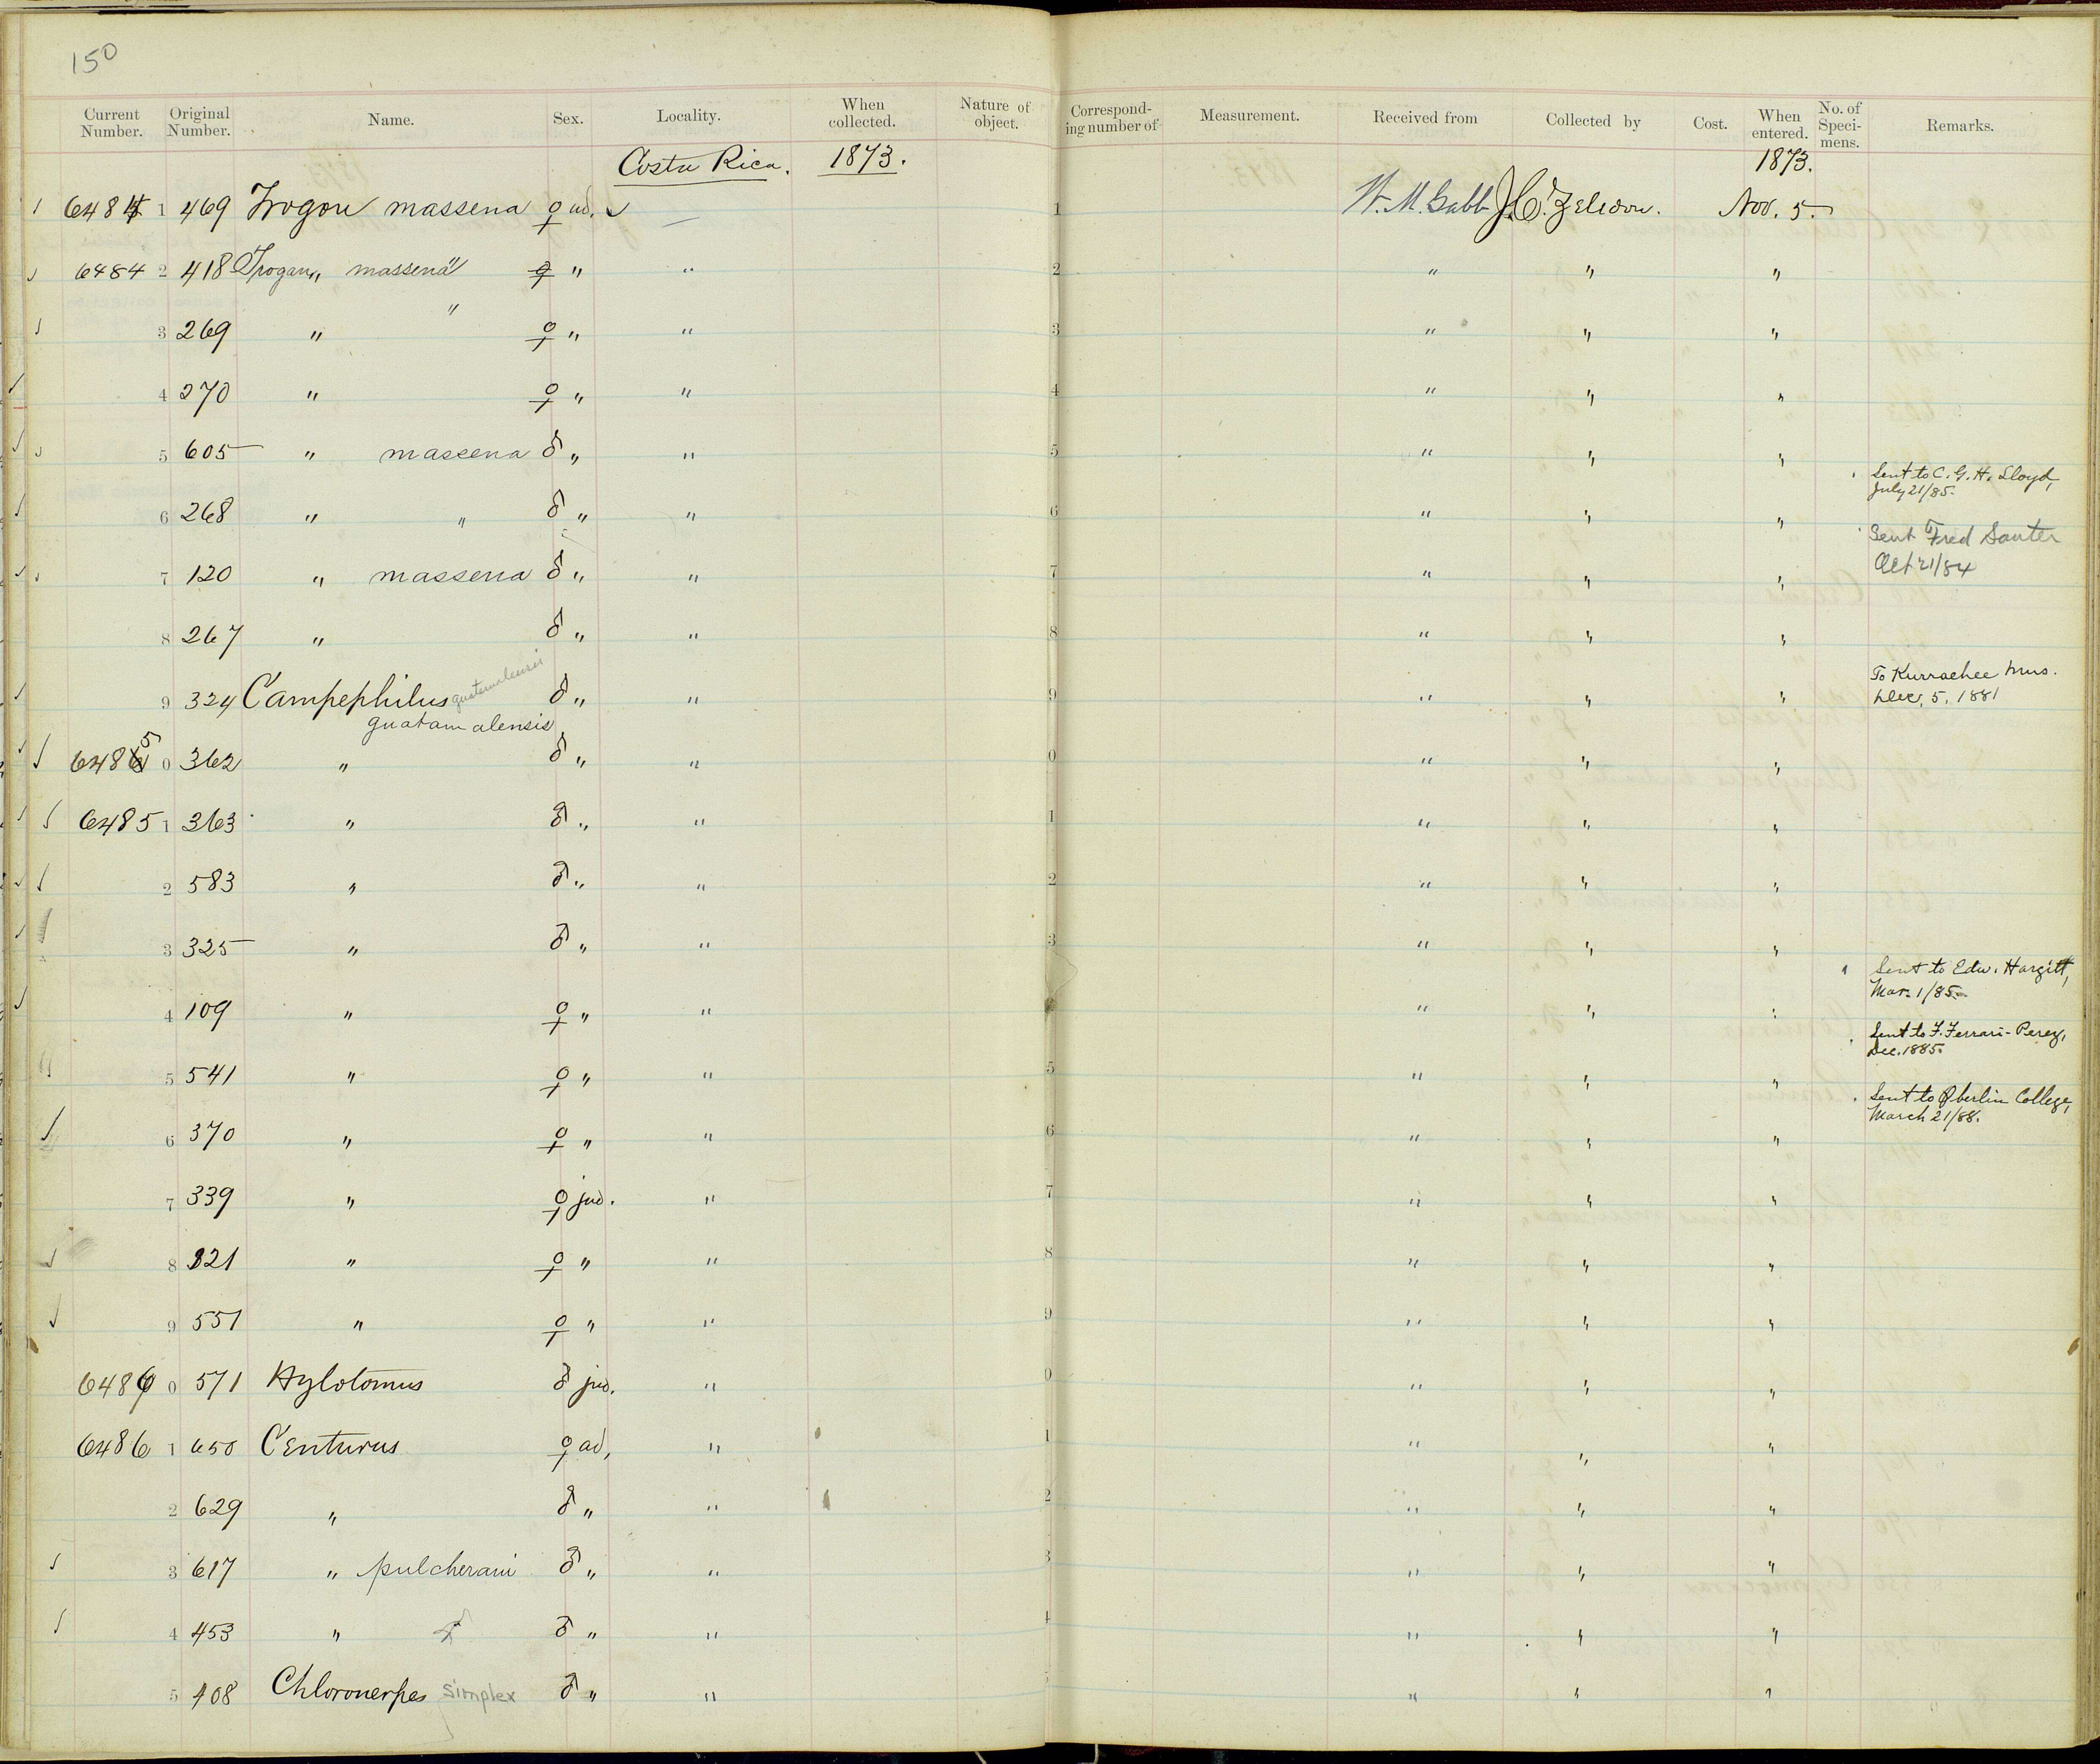 150
Current Number. Original Number. Name. Sex. Locality. When collected. Nature of object. Corresponding number of Measurement. Received from Collected by Cost. When entered. No. of Specimens. Remarks.
Costa Rica. 1873. 1873.
6484 1 469 Trogon massena ♀ ad. 1 W. M. Gabb J. C. Zeledon. Nov. 5.
6484 2 418 Trogan " massena " ♀ " " 2 " " "
"
3 269 " ♀ " " 3 " " "
4 270 " ♀ " " 4 " " "
5 605 " massena ♂ " " 5 " " " Sent to C. G. H. Lloyd, July 21/85.
6 268 " " ♂ " " 6 " " " Sent Fred Sauter Oct 21/84
7 120 " massena ♂ " " 7 " " "
8 267 " ♂ " " 8 " " "
9 324 Campephilus guatemalensis ♂ " " 9 " " " To Kurrachee Mus. Dec. 5, 1881
guatamalensis
6485 0 362 " ♂ " " 0 " " "
6485 1 363 " ♂ " " 1 " " "
2 583 " ♂ " " 2 " " "
3 325 " ♂ " " 3 " " " Sent to Edw. Hargitt, Mar. 1/85.
4 109 " ♀ " " " " " Sent to F. Ferrari-Perez, Dec. 1885.
5 541 " ♀ " " 5 " " " Sent to Oberlin College, March 21/88.
6 370 " ♀ " " 6 " " "
7 339 " ♀ juv. " 7 " " "
8 321 " ♀ " " 8 " " "
9 551 " ♀ " " 9 " " "
6486 0 571 Hylotomus ♂ juv. " 0 " " "
6486 1 650 Centurus ♀ ad, " 1 " " "
2 629 " ♂ " " 2 " " "
3 617 " pulcherani ♂ " " 3 " " "
4 453 " ♂ " " 4 " " "
5 408 Chloronerpes simplex ♂ " " " " "